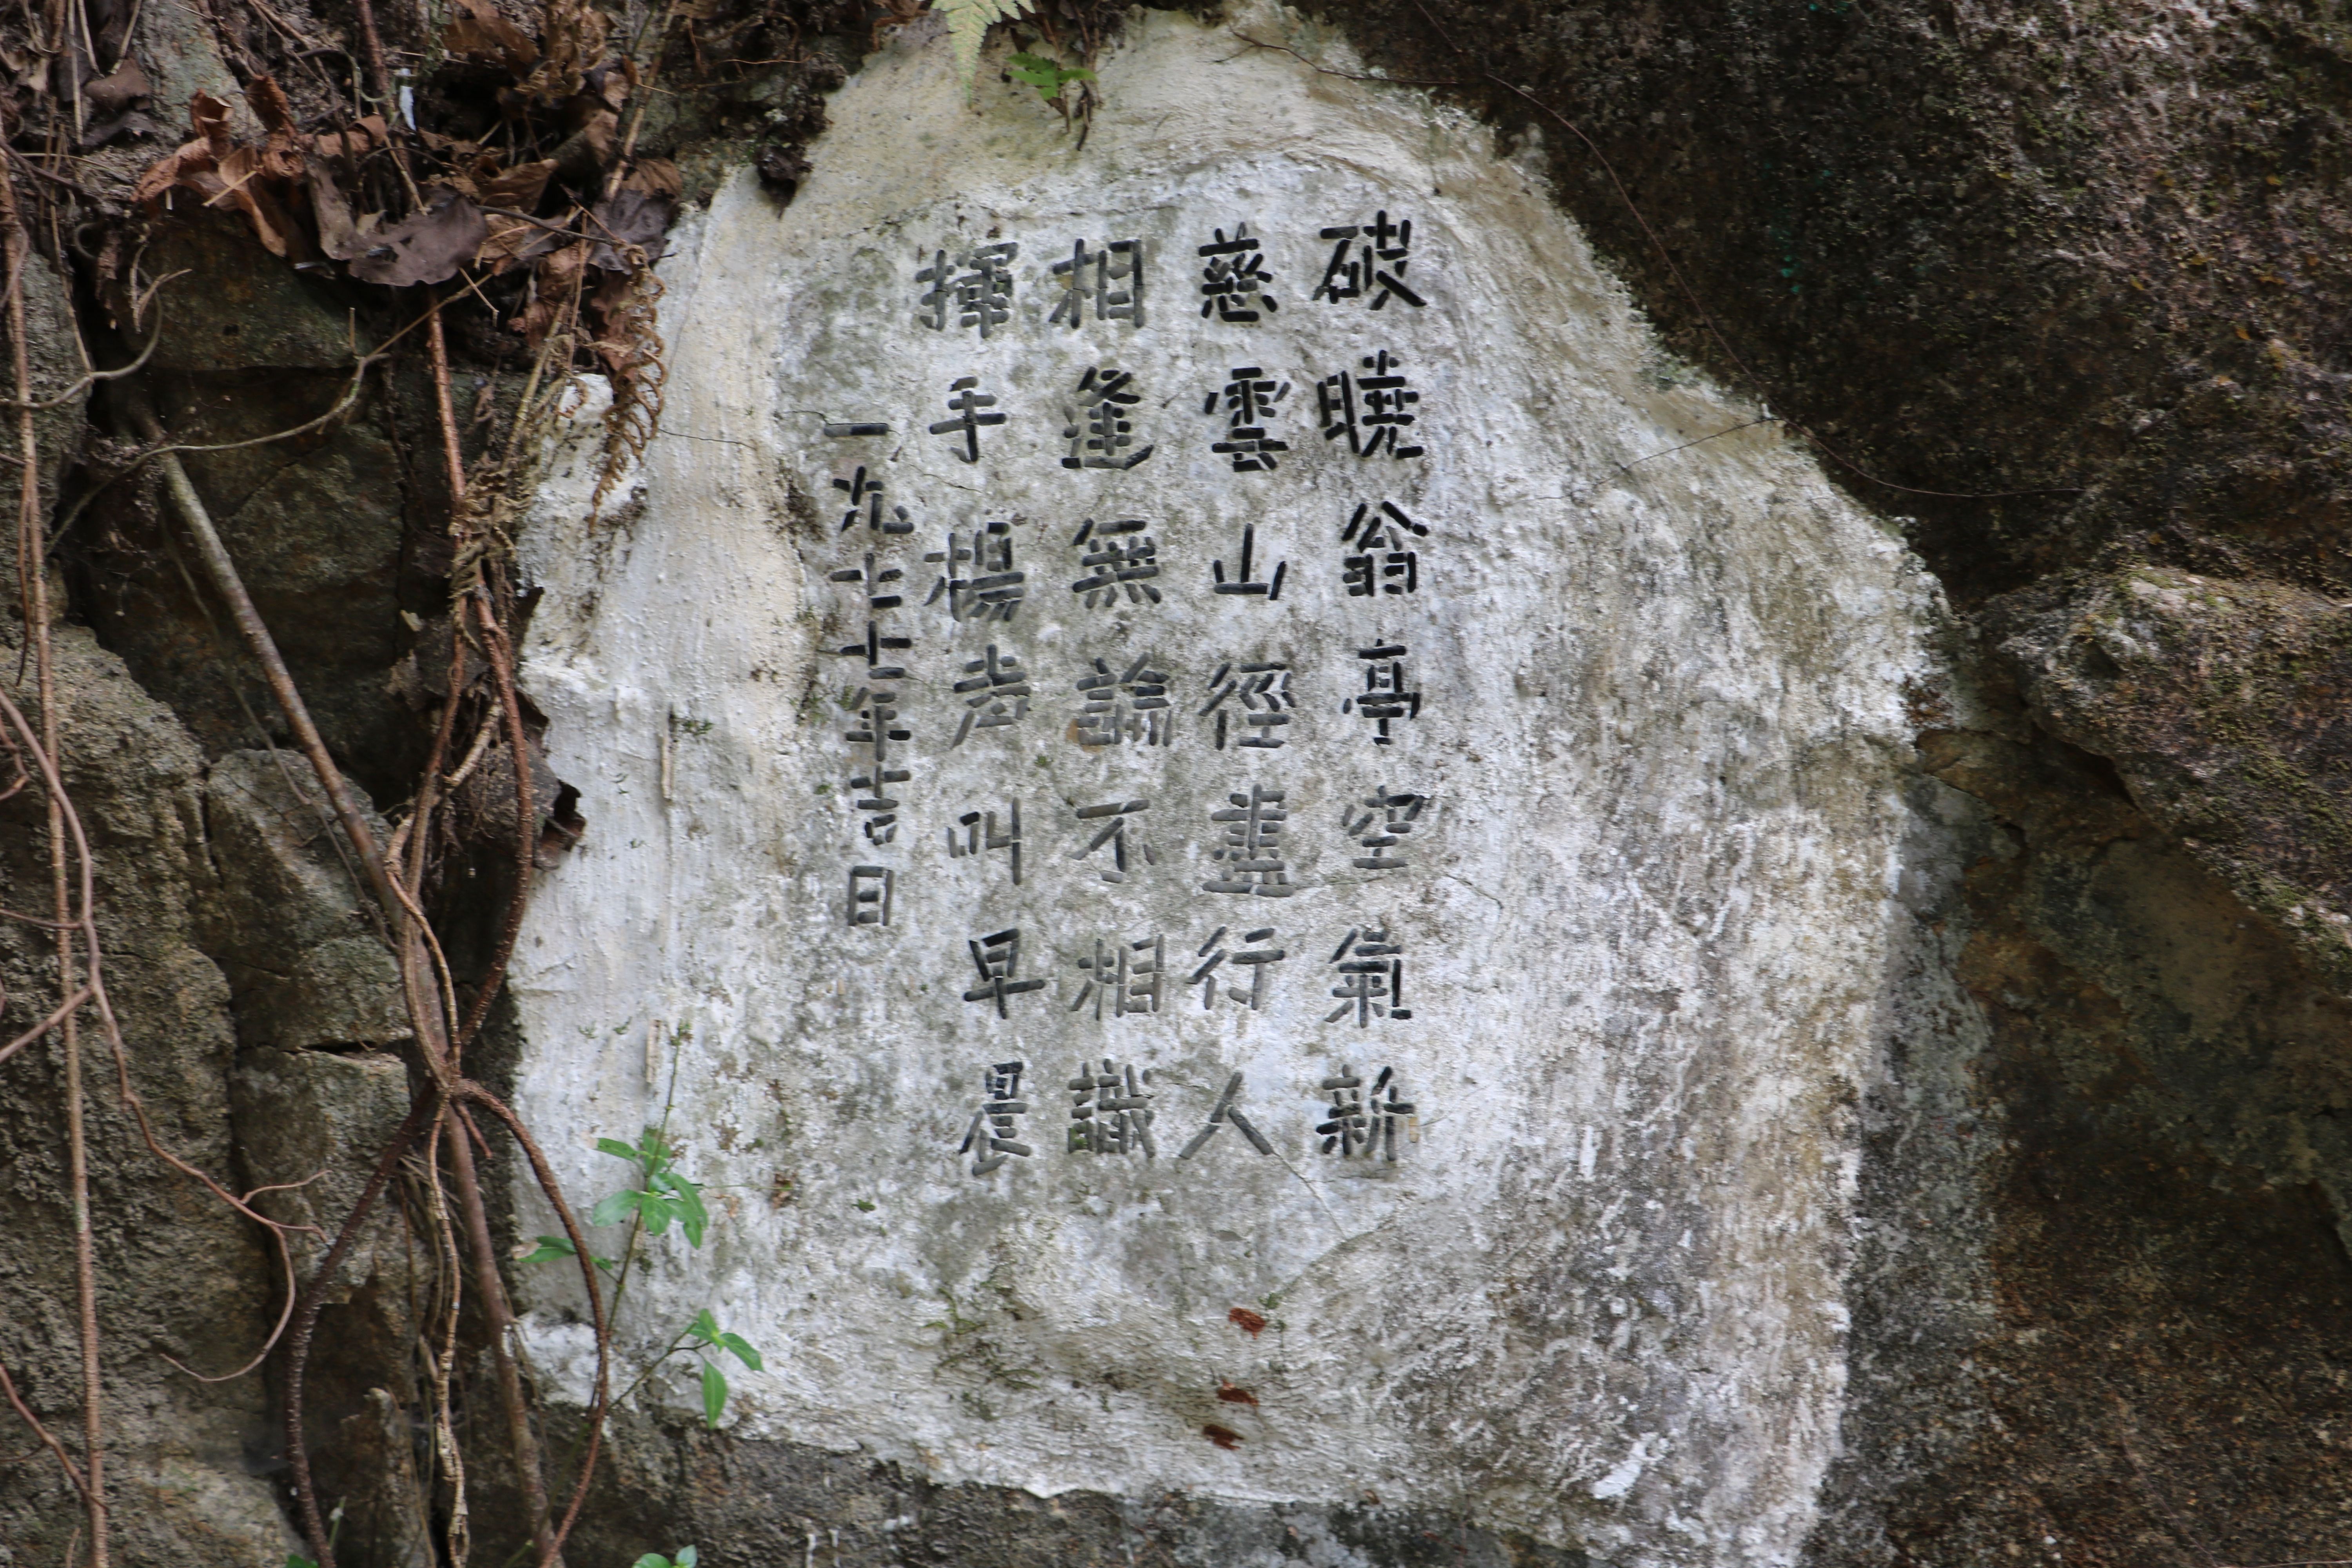 破曉翁亭空氣新
慈雲山徑盡行人
相逢無論不相識
揮手楊声叫早晨
一九七七年吉日